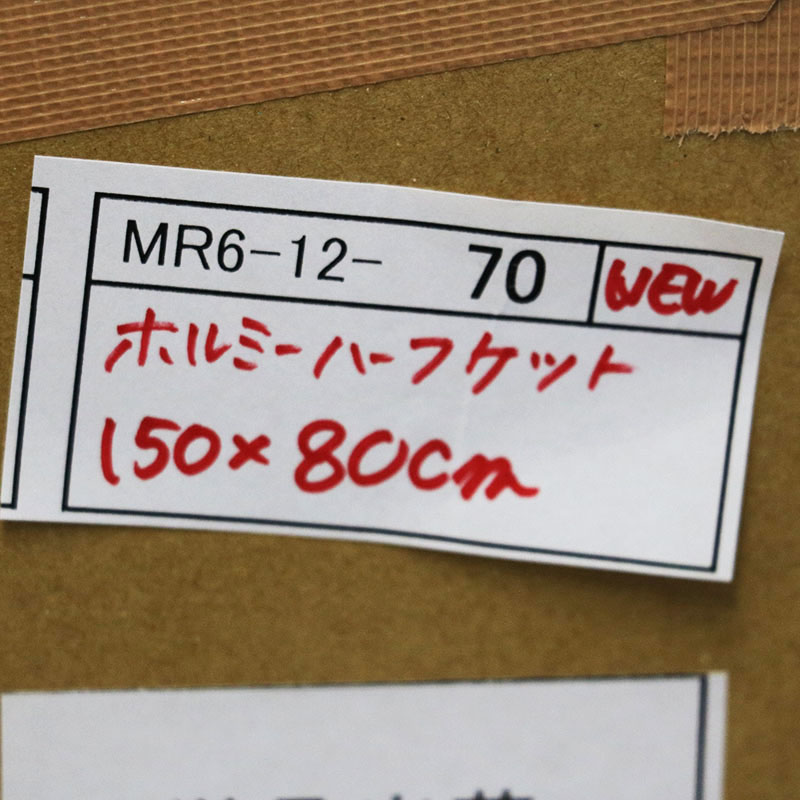 MR6-12- 70 NEW
ホルミーハーフケット
150×80cm